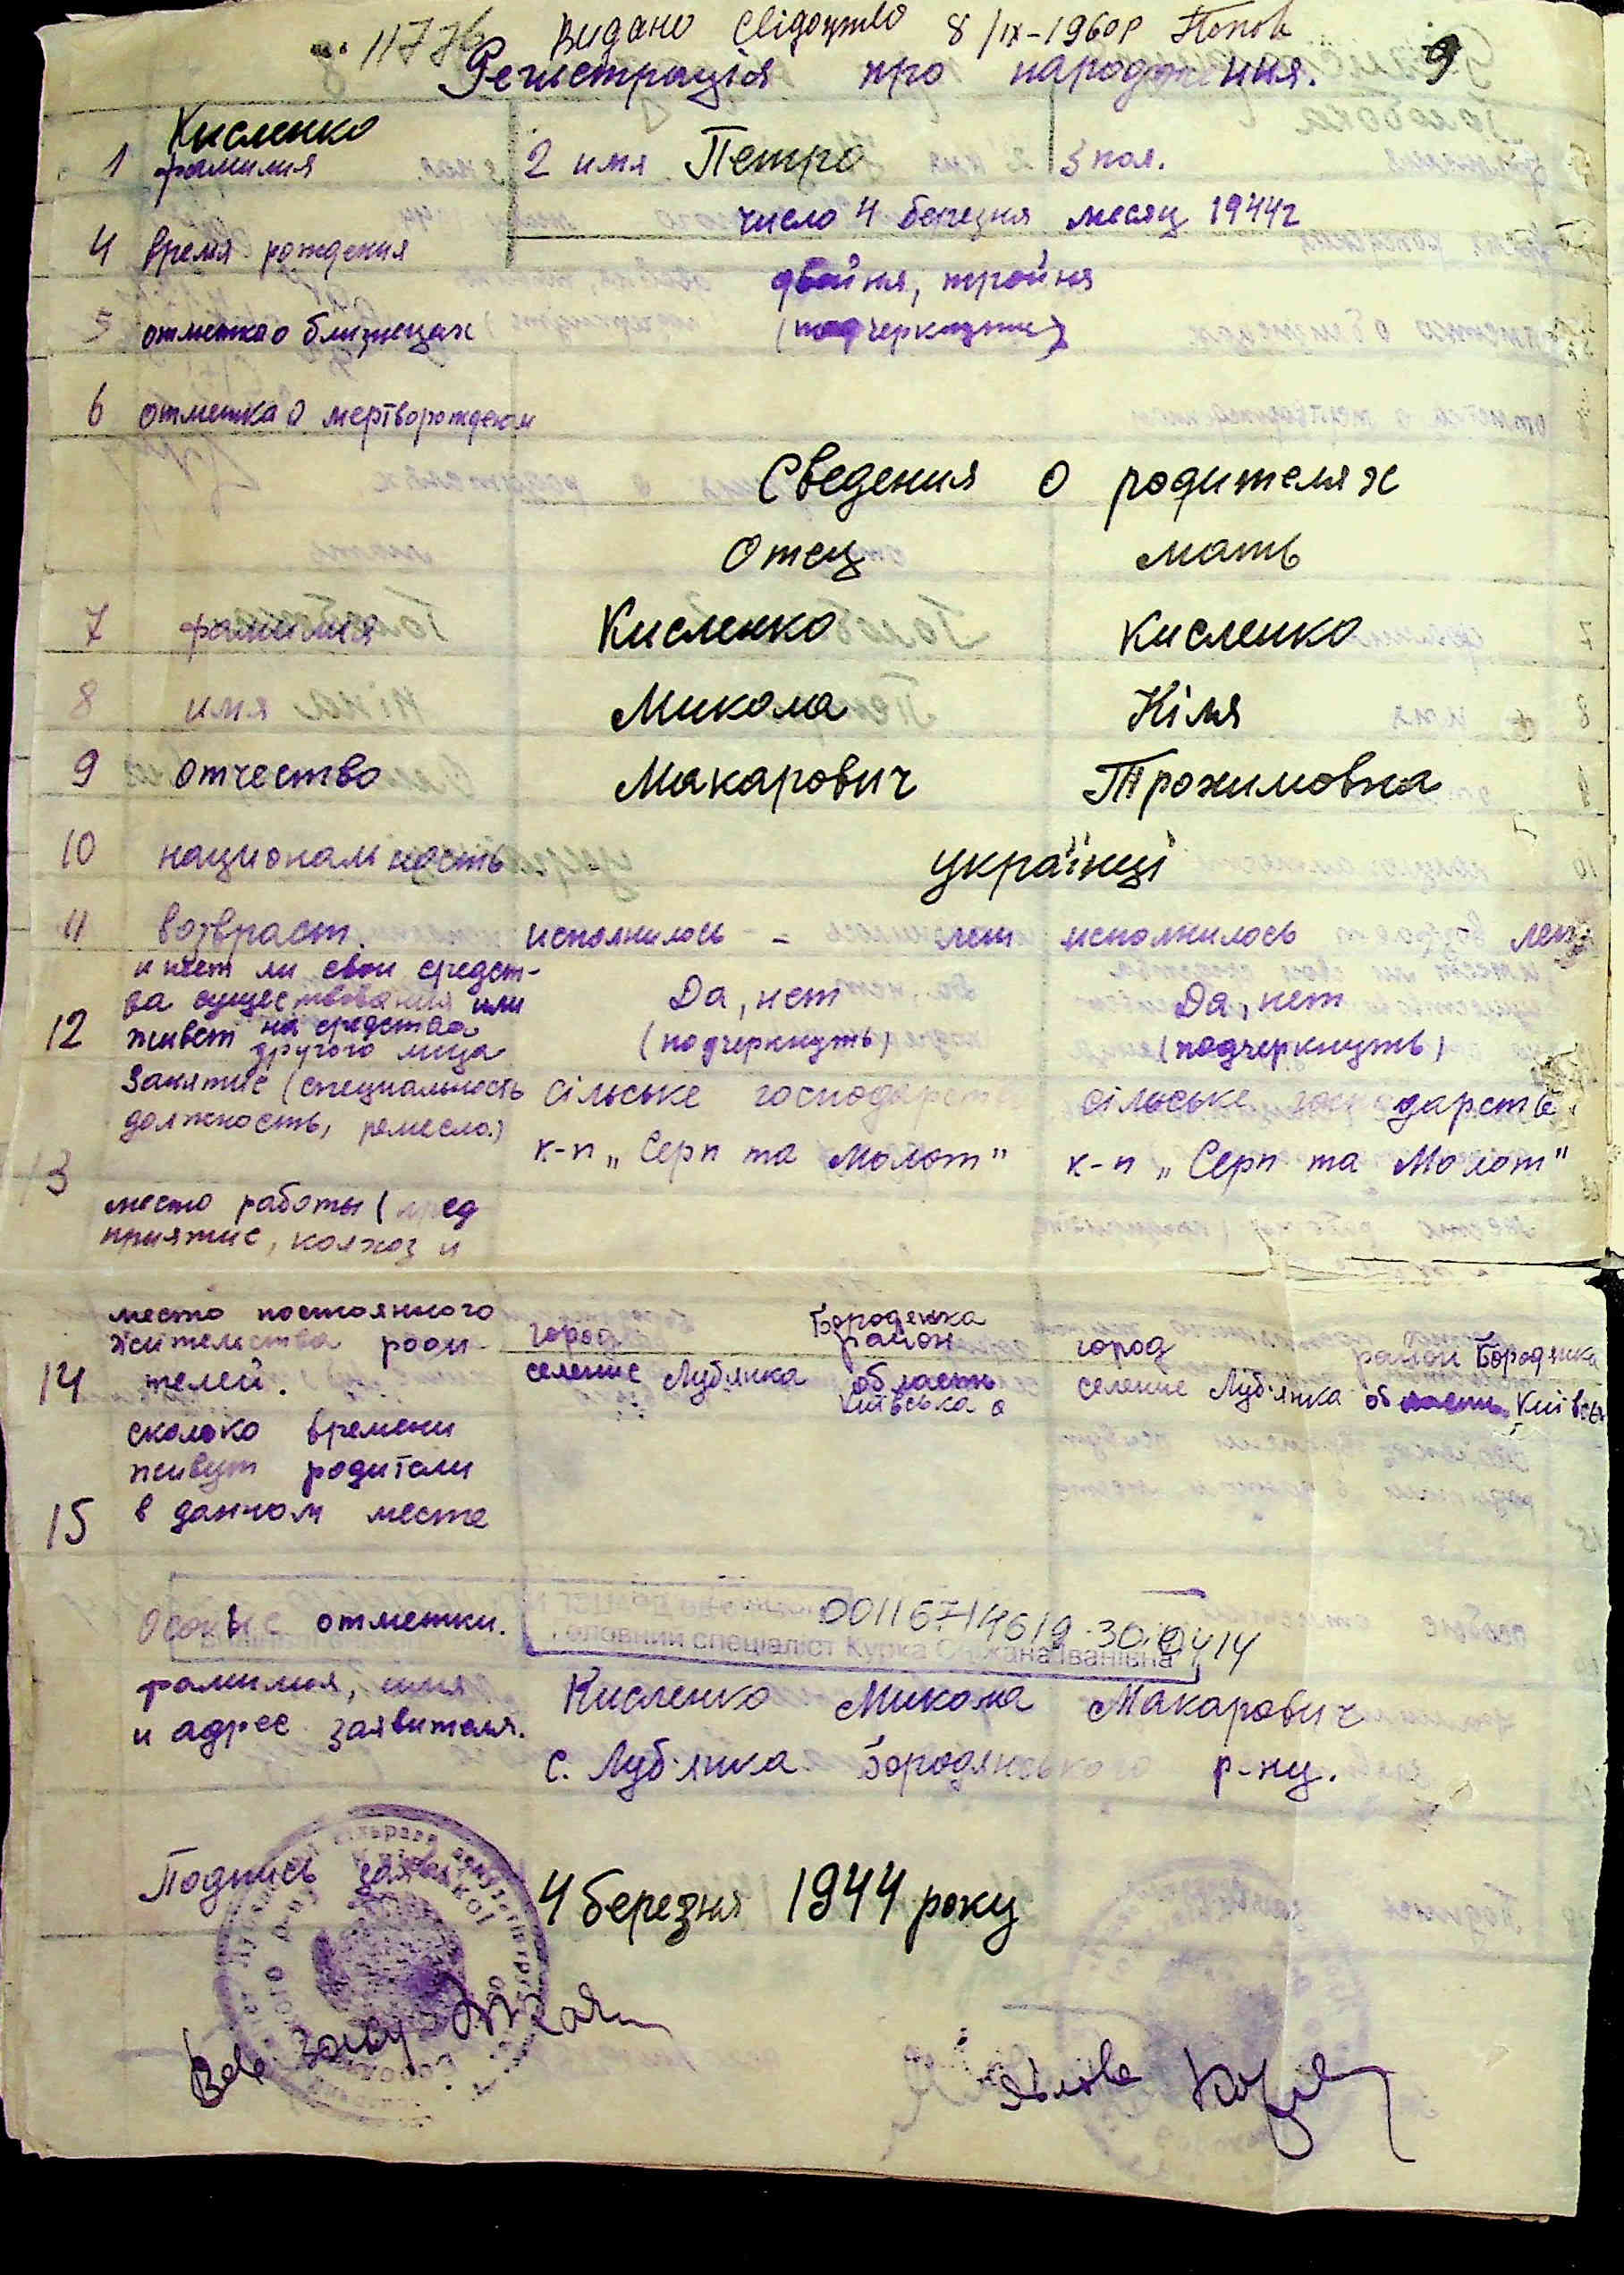 11776 Видано Свідоцтво 8/IX-1960р Попов
Регистрація про народження. 9
Кисленко
1 фамилия 2 имя Петро 3 пол.
число 4 березня месяц 1944г
4 время рождения
двойня, тройня
5 отметка о близнецах (подчеркнути)
6 отметка о мертворожденом
Сведения о родителях
Отец мать
7 фамилия Кисленко Кисленко
8 имя Микола Кіля
9 отчество Макарович Трохимовна
10 националность українці
11 возвраст. исполнилось - лет исполнилось лет
имеет ли свои средст-
ва существования или Да, нет Да, нет
12 живет на средства
другого лица (подчеркнуть) (подчеркнуть)
Занятие (специальность сільське господарств сільське господарств
должность, ремесло)
к-п „Серп та Молот" к-п „Серп та Молот"
13
место работы (пред
приятие, колхоз и
место постоянного
жительства роди- город Бороденка район город район Бородянка
14 телей. селение Луб'янка область Київська о селение Луб'янка область Київськ
сколько времени
живут родители
15 в данном месте
Особые отметки. 00116714619 30.04.14
Головний спеціаліст Курка Іванівна
фамилия, имя Кисленко Микола Макарович
и адрес заявителя.
с. Луб'янка Бородянського р-ну.
Подпись заяви
4 березня 1944 року